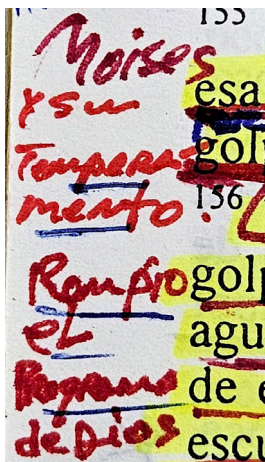 Moises
y su
Tempera-
mento.
Rompio
el
Programa
de Dios
155
esa
golp
156
golp
agu
de e
escu